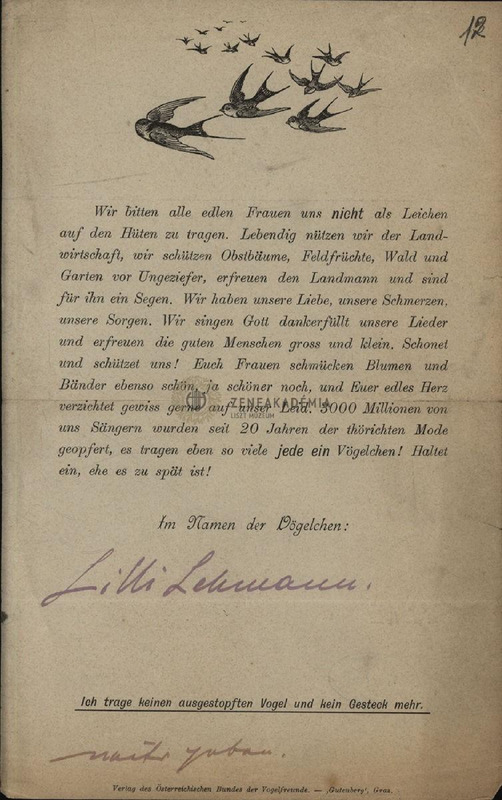 12
Wir bitten alle edlen Frauen uns nicht als Leichen
auf den Hüten zu tragen. Lebendig nützen wir der Land-
wirtschaft, wir schützen Obstbäume, Feldfrüchte, Wald und
Garten vor Ungeziefer, erfreuen den Landmann und sind
für ihn ein Segen. Wir haben unsere Liebe, unsere Schmerzen,
unsere Sorgen. Wir singen Gott dankerfüllt unsere Lieder
und erfreuen die guten Menschen gross und klein. Schonet
und schützet uns! Euch Frauen schmücken Blumen und
Bänder ebenso schön, ja schöner noch, und Euer edles Herz
verzichtet gewiss gerne auf unser Leid. 3000 Millionen von
ZENEAKADÉMIA
LISZT MÚZEUM
uns Sängern wurden seit 20 Jahren der thörichten Mode
geopfert, es tragen eben so viele jede ein Vögelchen! Haltet
ein, ehe es zu spät ist!
Im Namen der Vögelchen:
Lilli Lehmann.
Ich trage keinen ausgestopften Vogel und kein Gesteck mehr.
Verlag des Österreichischen Bundes der Vogelfreunde. — ‚Gutenberg', Graz.